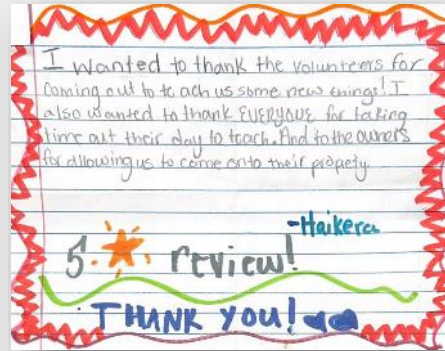 I wanted to thank the volunteers for
coming out to teach us some new things! I
also wanted to thank EVERYONE for taking
time out their day to teach. And to the owners
for allowing us to come onto their propety.
-Haikera
5 review!
THANK YOU!